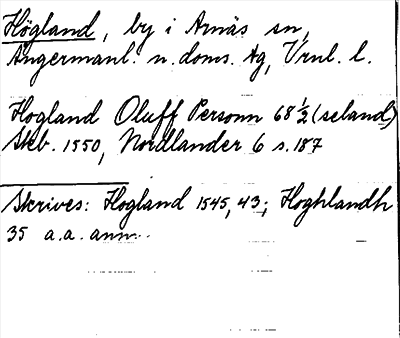 Högland, by i Arnäs sn,
Ångermanl. n. doms. tg, Vrnl. l.
Hogland Oluff Personn 68 ½ (seland)
Skb. 1550, Nordlander 6 s. 187
Skrives: Hogland 1545, 43; Hoghlandh
35 a.a. anm.